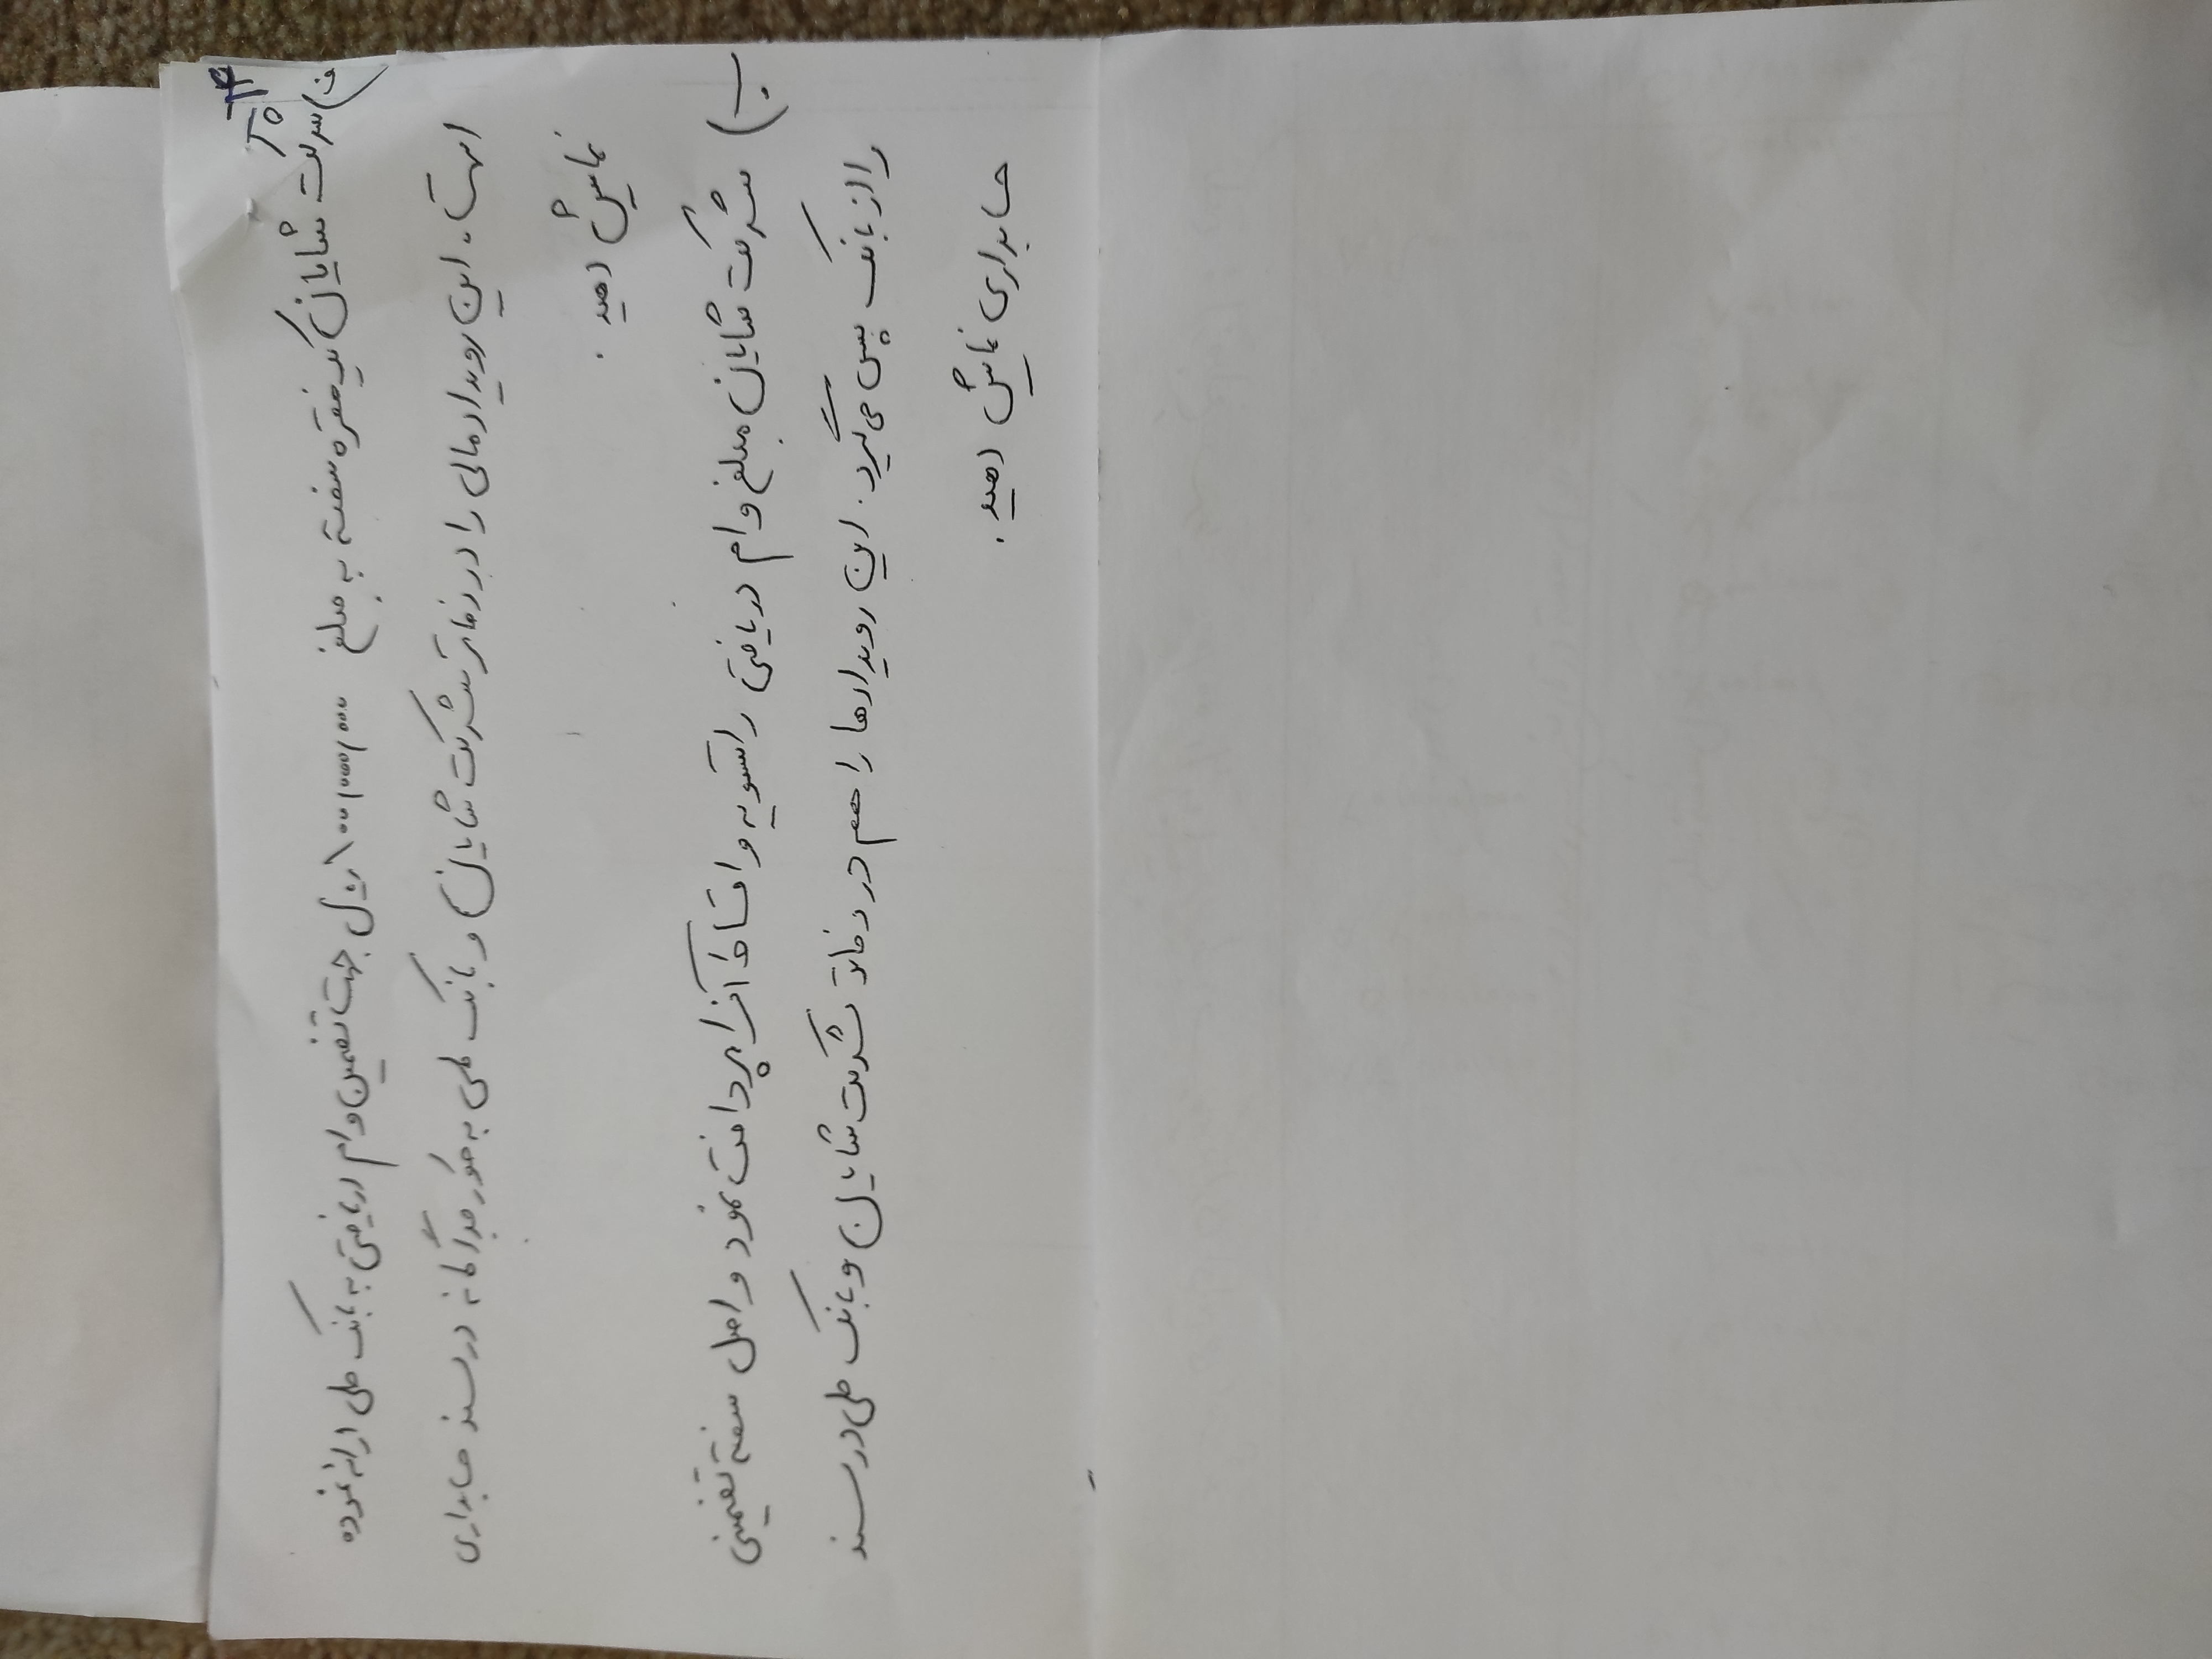 الف) شرکت شایان یک فقره سفته به مبلغ ۱۰۰/۰۰۰/۰۰۰ ریال جهت تضمین وام دریافتی به بانک ملی ارائه نموده
است. این رویداد مالی را در دفاتر شرکت شایان و بانک ملی به طور جداگانه در سند حسابداری
نمایش دهید.
ب) شرکت شایان مبلغ وام دریافتی را تسویه و اقساط آنرا پرداخت نمود و اصل سفته تضمینی
را از بانک پس می‌گیرد. این رویدادها را هم در دفاتر شرکت شایان و بانک ملی در سند
حسابداری نمایش دهید.